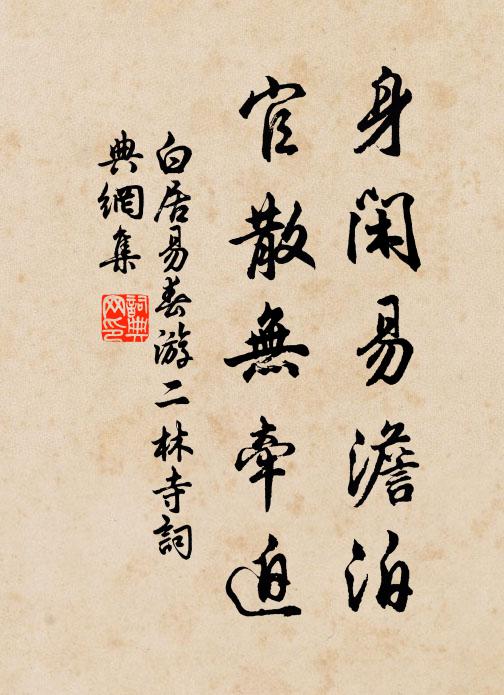 身閑易澹泊
官散無牽迫
白居易春游二林寺詞
典網集
詞典網印